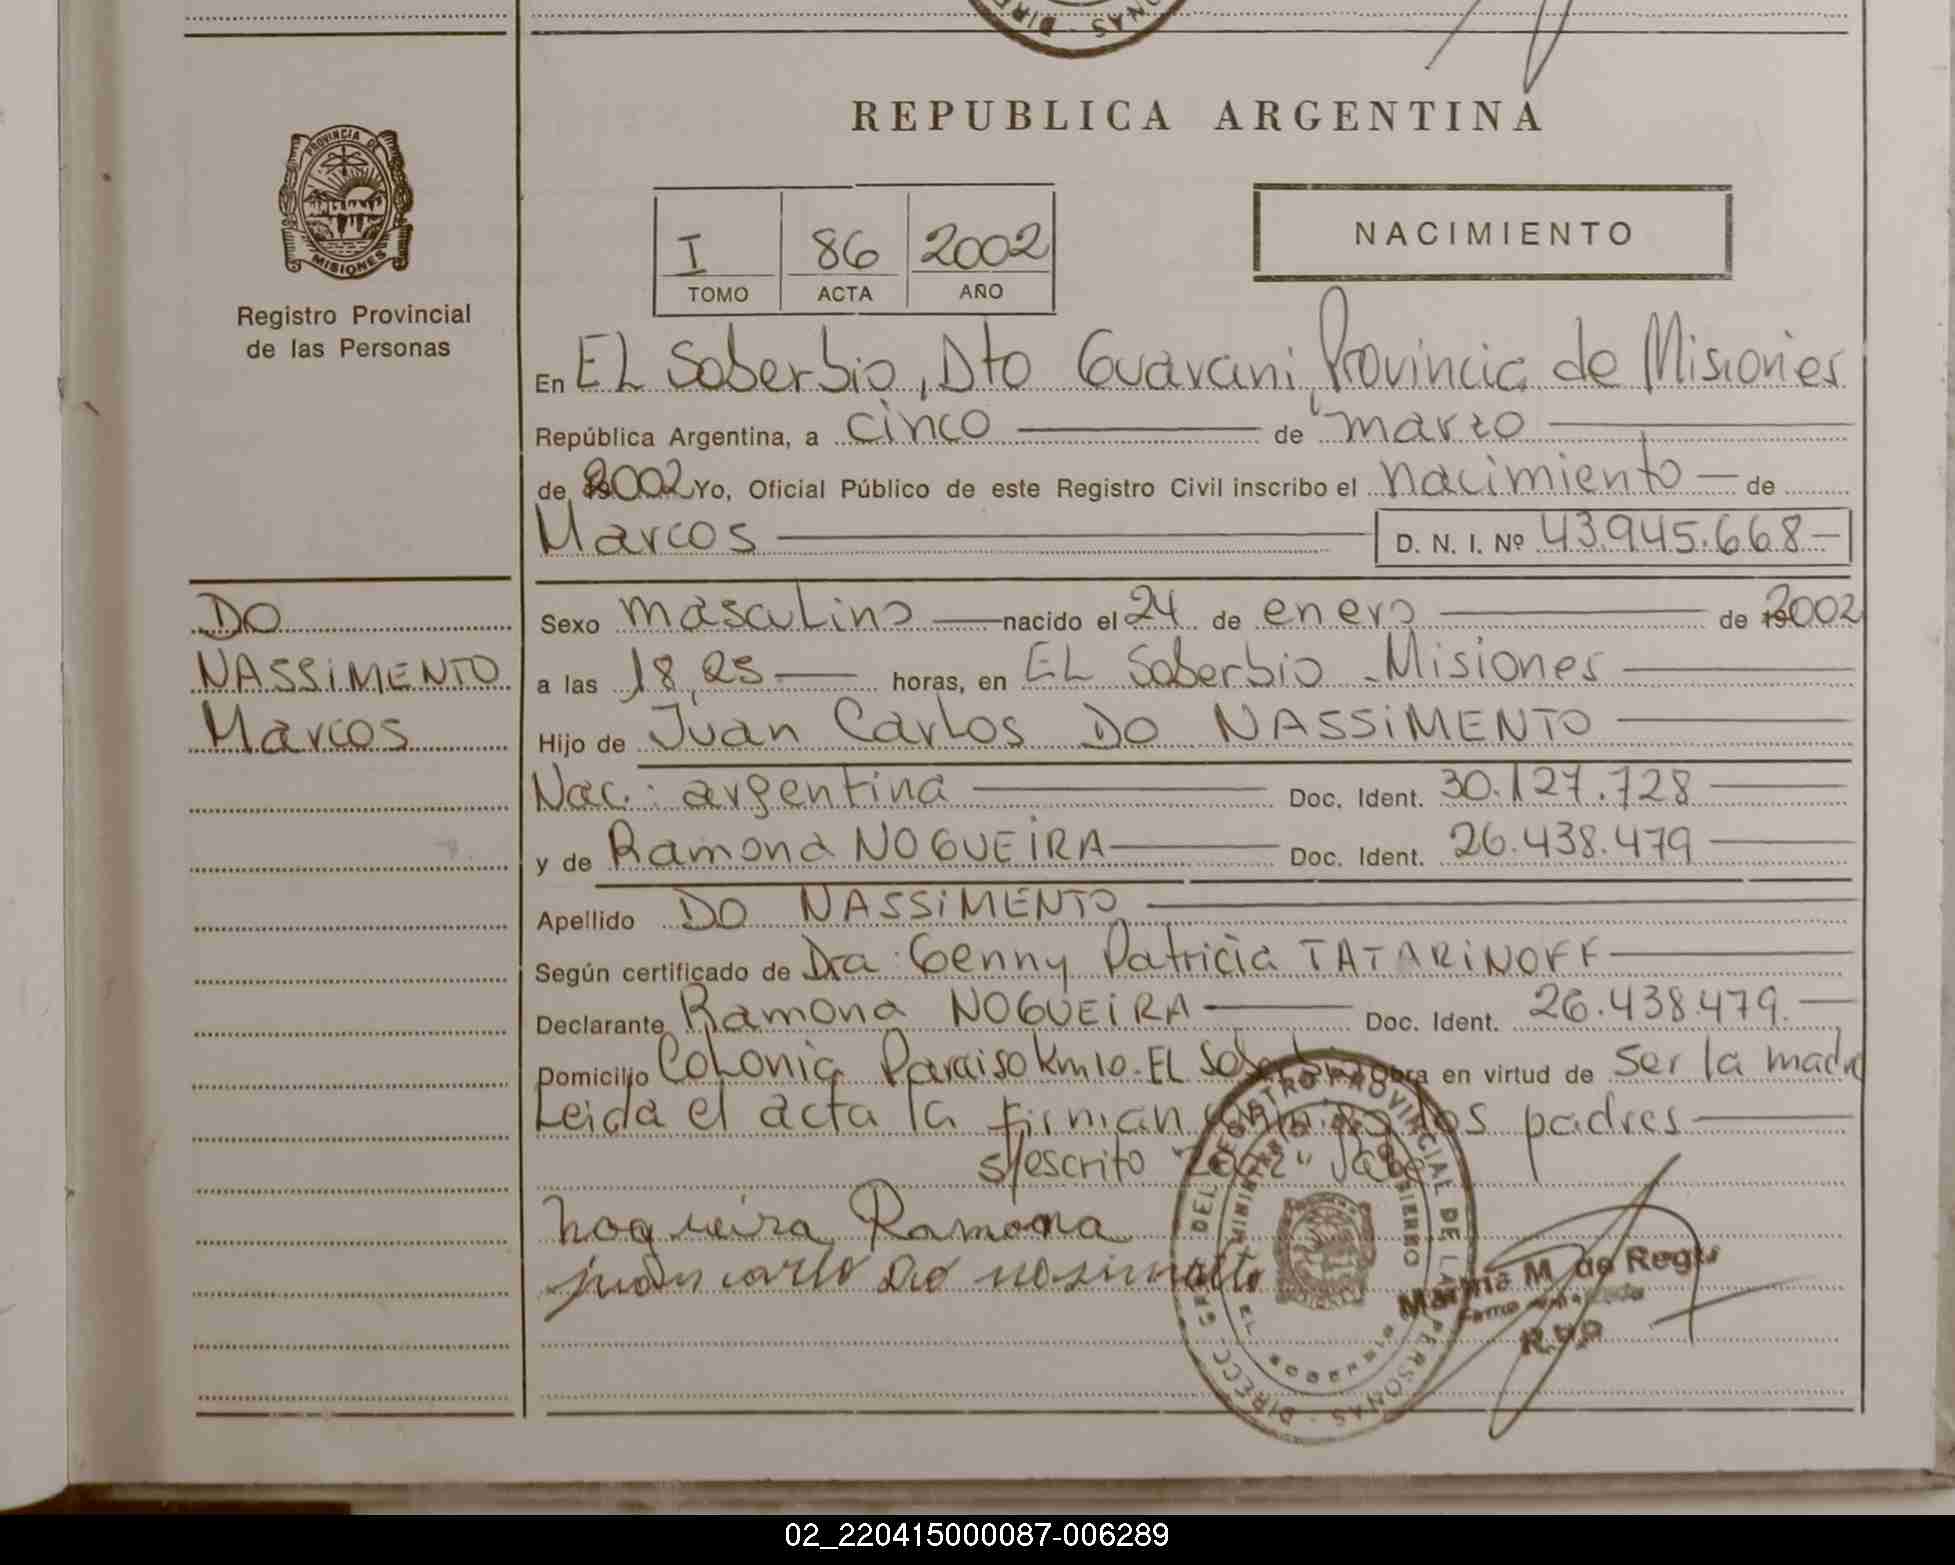 REPUBLICA ARGENTINA
PROVINCIA DE
MISIONES
Registro Provincial
de las Personas
I 86 2002
TOMO ACTA AÑO
NACIMIENTO
En EL Soberbio, Dto Guarani, Provincia de Misiones
República Argentina, a cinco de marzo
de 2002 Yo, Oficial Público de este Registro Civil inscribo el nacimiento de
Marcos D. N. I. Nº 43.945.668
DO
NASSIMENTO
Marcos
Sexo masculino nacido el 24 de enero de 2002
a las 18,25 horas, en EL Soberbio - Misiones
Hijo de Juan Carlos DO NASSIMENTO
Nac.: argentina Doc. Ident. 30.127.728
y de Ramona NOGUEIRA Doc. Ident. 26.438.479
Apellido DO NASSIMENTO
Según certificado de Dra. Genny Patricia TATARINOFF
Declarante Ramona NOGUEIRA Doc. Ident. 26.438.479.
Domicilio Colonia Paraiso Km 10. EL Soberbio Obra en virtud de ser la madre
Leida el acta la firman los padres
s/escrito "2002" Vale
Nogueira Ramona
juan carlo Do
DIRECC. GRAL. DEL REGISTRO PROVINCIAL DE LAS PERSONAS
MINISTERIO DE GOBIERNO
EL SOBERBIO
Marina M. de Regu
02_220415000087-006289